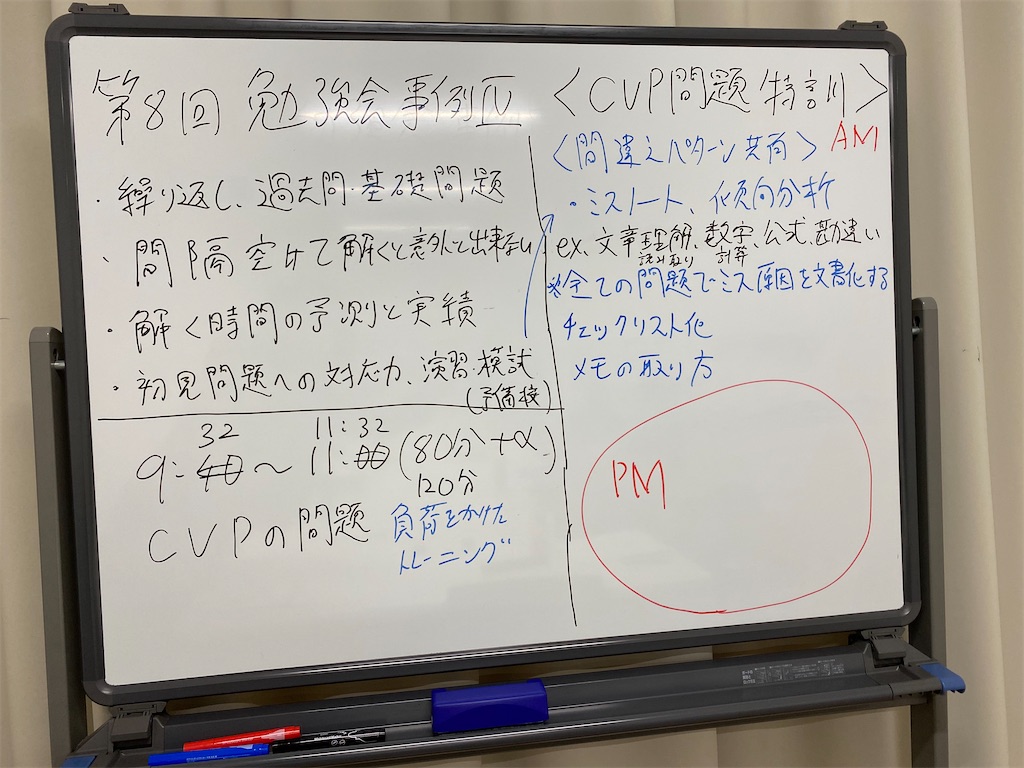 第8回 勉強会事例Ⅳ
・繰り返し、過去問・基礎問題
・間隔空けて解くと意外と出来ない
・解く時間の予測と実績
・初見問題への対応力、演習・模試
(予備校)
32 11:32
9:40〜11:00(80分+α)
120分
CVPの問題 負荷をかけた
トレーニング
<CVP問題特訓>
<間違えパターン共有> AM
・ミスノート、傾向分析
ex.文章理解、数字、公式、勘違い
読み取り 計算
※全ての問題でミス原因を文書化する
チェックリスト化
メモの取り方
PM